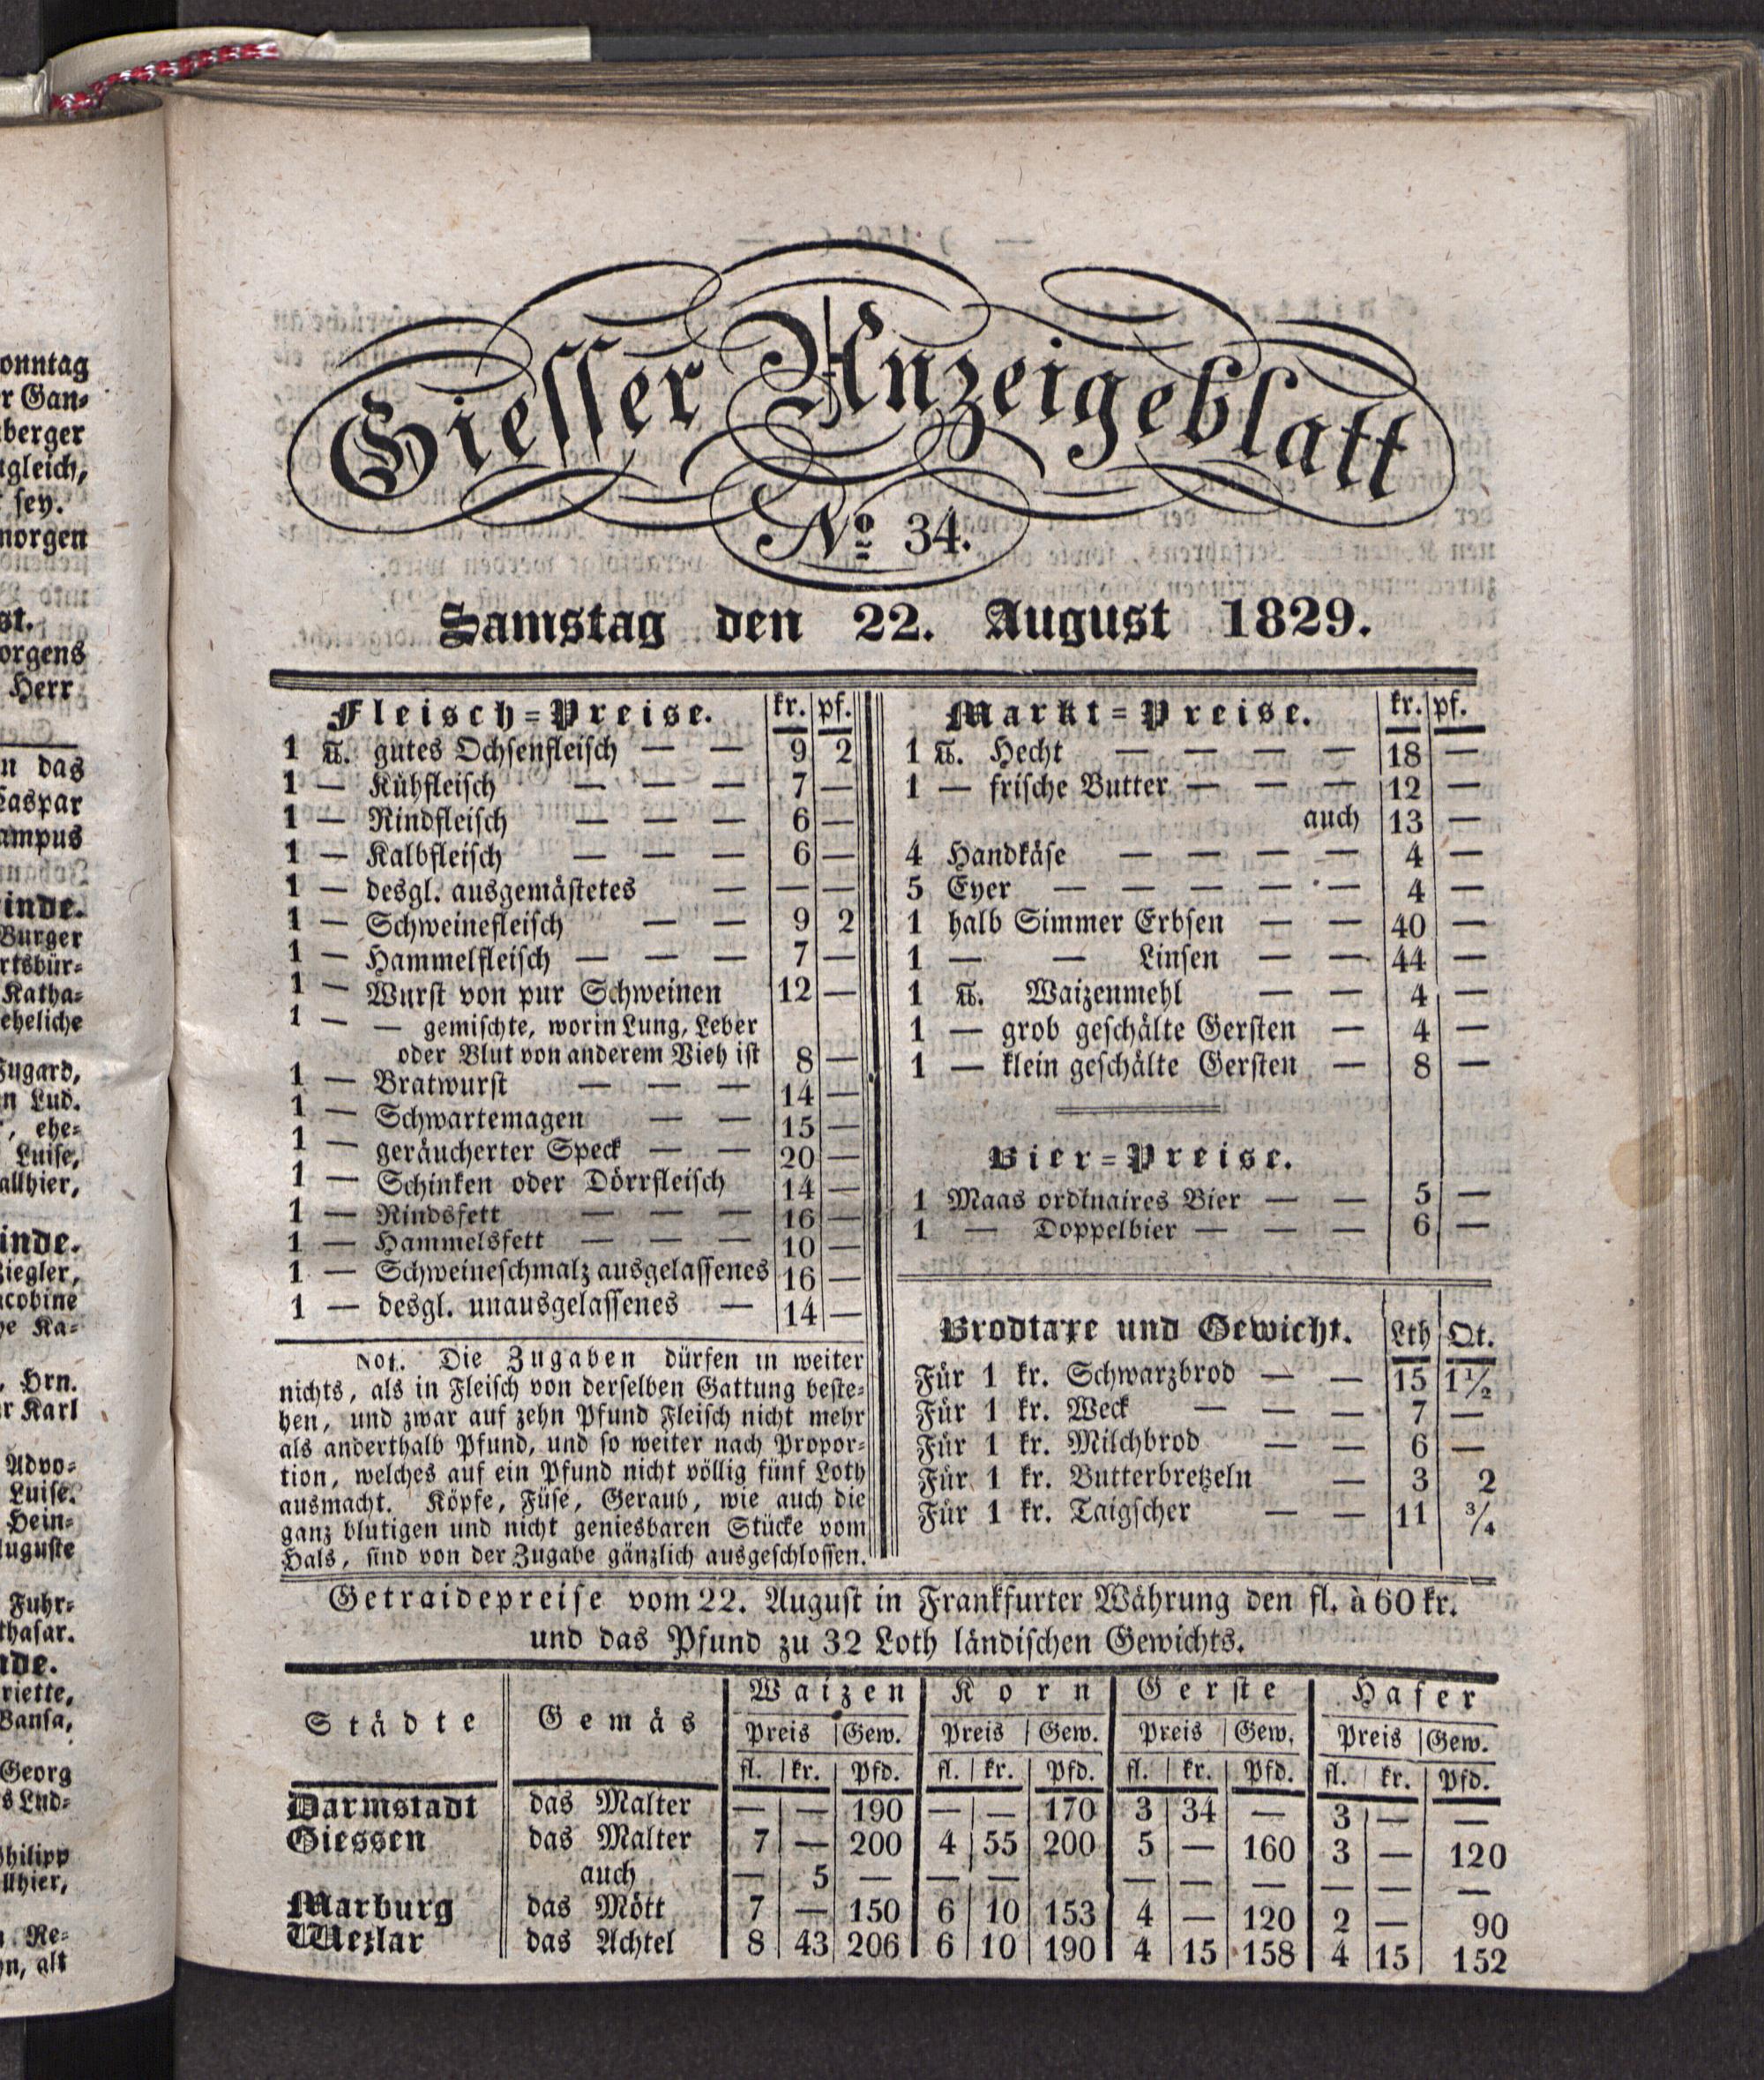 onntag
r Gan-
berger
gleich,
sey.
morgen
st.
orgens
Herr
n das
Caspar
ampus
inde.
Burger
rtsbür-
Katha-
eheliche
Fugard,
n Lud.
, ehe-
Luise,
allhier,
inde.
Ziegler,
acobine
he Ka-
, Hrn.
r Karl
Advo-
Luise.
Hein-
uguste
Fuhr-
thasar.
nde.
riette,
Bansa,
Georg
s Lud-
Philipp
llhier,
Re-
n, alt
Giesser Anzeigeblatt
No 34.
Samstag den 22. August 1829.
Fleisch-Preise. kr. pf.
1 ℔. gutes Ochsenfleisch — — 9 2
1 — Kühfleisch — — — 7 —
1 — Rindfleisch — — — 6 —
1 — Kalbfleisch — — — 6 —
1 — desgl. ausgemästetes — — —
1 — Schweinefleisch — — 9 2
1 — Hammelfleisch — — — 7 —
1 — Wurst von pur Schweinen 12 —
1 — — gemischte, worin Lung, Leber
oder Blut von anderem Vieh ist 8 —
1 — Bratwurst — — — 14 —
1 — Schwartemagen — — 15 —
1 — geräucherter Speck — — 20 —
1 — Schinken oder Dörrfleisch 14 —
1 — Rindsfett — — — 16 —
1 — Hammelsfett — — — 10 —
1 — Schweineschmalz ausgelassenes 16 —
1 — desgl. unausgelassenes — 14 —
Not. Die Zugaben dürfen in weiter
nichts, als in Fleisch von derselben Gattung beste-
hen, und zwar auf zehn Pfund Fleisch nicht mehr
als anderthalb Pfund, und so weiter nach Propor-
tion, welches auf ein Pfund nicht völlig fünf Loth
ausmacht. Köpfe, Füse, Geraub, wie auch die
ganz blutigen und nicht geniesbaren Stücke vom
Hals, sind von der Zugabe gänzlich ausgeschlossen.
Markt-Preise. kr. pf.
1 ℔. Hecht — — — — 18 —
1 — frische Butter — — — 12 —
auch 13 —
4 Handkäse — — — — 4 —
5 Eyer — — — — — 4 —
1 halb Simmer Erbsen — — 40 —
1 — — Linsen — — 44 —
1 ℔. Waizenmehl — — 4 —
1 — grob geschälte Gersten — 4 —
1 — klein geschälte Gersten — 8 —
Bier-Preise.
1 Maas ordinaires Bier — — 5 —
1 — Doppelbier — — — 6 —
Brodtaxe und Gewicht. Lth Qt.
Für 1 kr. Schwarzbrod — — 15 1½
Für 1 kr. Weck — — — 7 —
Für 1 kr. Milchbrod — — 6 —
Für 1 kr. Butterbretzeln — 3 2
Für 1 kr. Taigscher — — 11 ¾
Getraidepreise vom 22. August in Frankfurter Währung den fl. à 60 kr.
und das Pfund zu 32 Loth ländischen Gewichts.
Städte Gemäs Waizen Korn Gerste Hafer
Preis Gew. Preis Gew. Preis Gew. Preis Gew.
fl. kr. Pfd. fl. kr. Pfd. fl. kr. Pfd. fl. kr. Pfd.
Darmstadt das Malter — — 190 — — 170 3 34 — 3 — —
Giessen das Malter 7 — 200 4 55 200 5 — 160 3 — 120
auch — 5 — — — — — — — — —
Marburg das Mött 7 — 150 6 10 153 4 — 120 2 — 90
Wezlar das Achtel 8 43 206 6 10 190 4 15 158 4 15 152